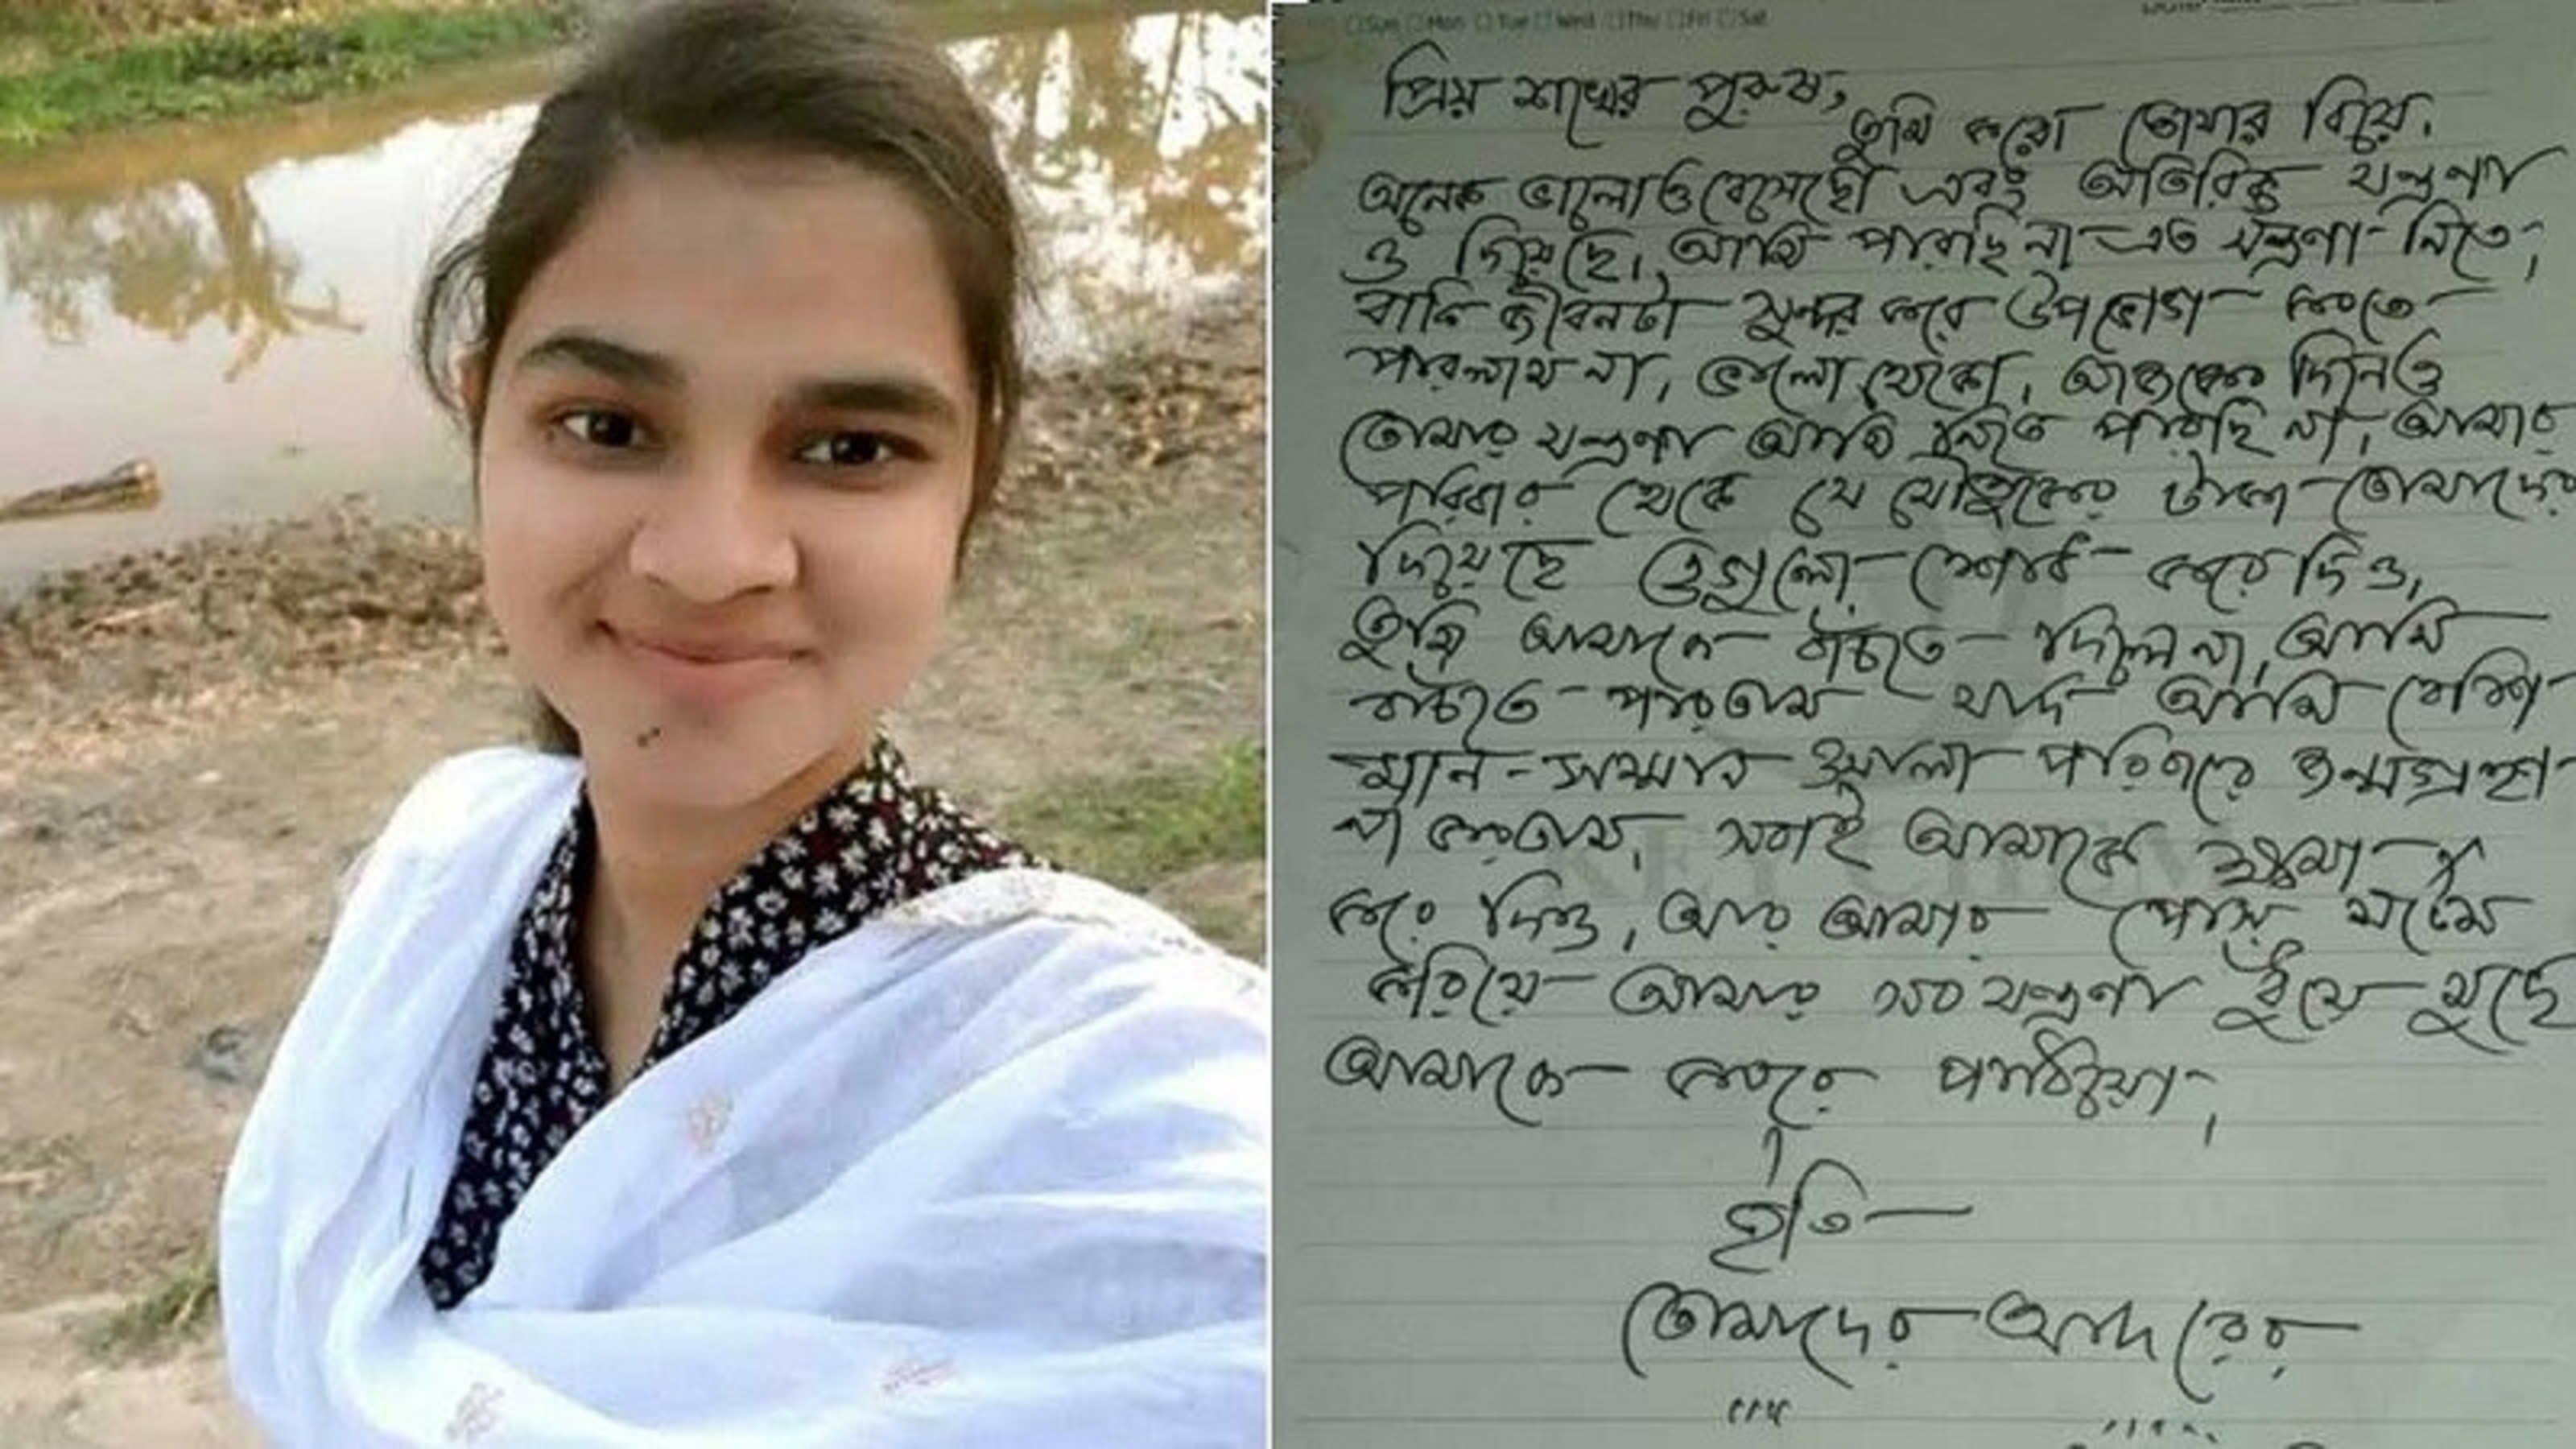 Sun Mon Tue Wed Thu Fri Sat
প্রিয় শখের পুরুষ,
তুমি করো তোমার বিয়ে।
অনেক ভালোও বেসেছো এবং অতিরিক্ত যন্ত্রণা
ও দিয়েছে। আমি পারছি না এত যন্ত্রণা নিতে,
বাকি জীবনটা সুন্দর করে উপভোগ করতে
পারলাম না, ভালো থেকো, আজকের দিনেও
তোমার যন্ত্রণা আমি নিতে পারছি না, আমার
পরিবার থেকে যে যৌতুকের টাকা তোমাদের
দিয়েছে ওগুলো শোধ করে দিও,
তুমি আমাকে বাঁচতে দিলে না, আমি
বাঁচতে পারতাম যদি আমি বেশি
মান-সম্মান ওয়ালা পরিবারে জন্মগ্রহণ
না করতাম, সবাই আমাকে ক্ষমা
করে দিও, আর আমার পোস্ট মর্টেম
করিয়ে আমার সব যন্ত্রণা ধুঁয়ে মুছে
আমাকে কবরে পাঠাইয়ো,
ইতি
তোমাদের আদরের